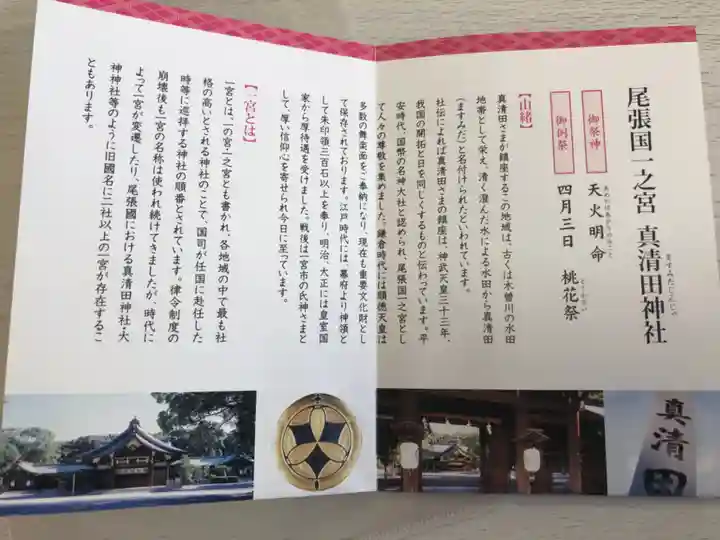 尾張国一之宮 真清田神社
ますみだじんじゃ
御祭神 天火明命
あめのほあかりのみこと
御例祭 四月三日 桃花祭
とうかさい
【由緒】
真清田さまが鎮座するこの地域は、古くは木曽川の水田
地帯として栄え、清く澄んだ水による水田から真清田
(ますみだ)と名付けられたといわれています。
社伝によれば真清田さまの鎮座は、神武天皇三十三年、
我国の開拓と日を同じくするものと伝わっています。平
安時代、国幣の名神大社と認められ、尾張国一之宮とし
て人々の尊敬を集めました。鎌倉時代には順徳天皇は
多数の舞楽面をご奉納になり、現在も重要文化財とし
て保存されております。江戸時代には、幕府より神領と
して朱印領三百石以上を奉り、明治、大正には皇室国
家から厚待遇を受けました。戦後は一宮市の氏神さまと
して、厚い信仰心を寄せられ今日に至っています。
【一宮とは】
一宮とは、一の宮・一之宮とも書かれ、各地域の中で最も社
格の高いとされる神社のことで、国司が任国に赴任した
時等に巡拝する神社の順番とされています。律令制度の
崩壊後も一宮の名称は使われ続けてきましたが、時代に
よって一宮が変遷したり、尾張國における真清田神社・大
神神社等のように旧國名に二社以上の一宮が存在するこ
ともあります。
真清田